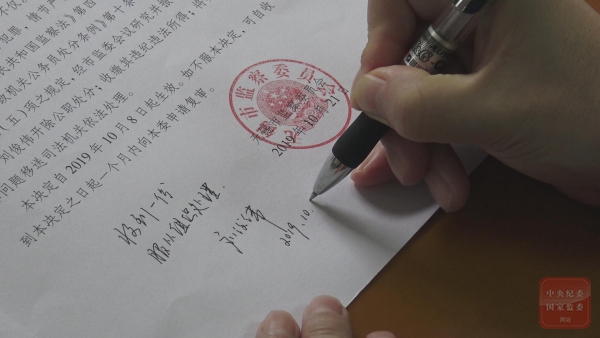 不仅
犯罪，情节严
民共和国监察法》第四
政机关公务员处分条例》第十条
（五）项之规定，经市监委会议研究并报
刘俊伟开除公职处分；收缴其违纪违法所得；将
问题移送司法机关依法处理。
本决定自2019年10月8日起生效。如不服本决定，可自收
到本决定之日起一个月内向本委申请复审。
市监察委员会
2019年10月21日
收到一份
服从组织处理
刘俊伟
2019.10.
中央纪委
国家监委
网站